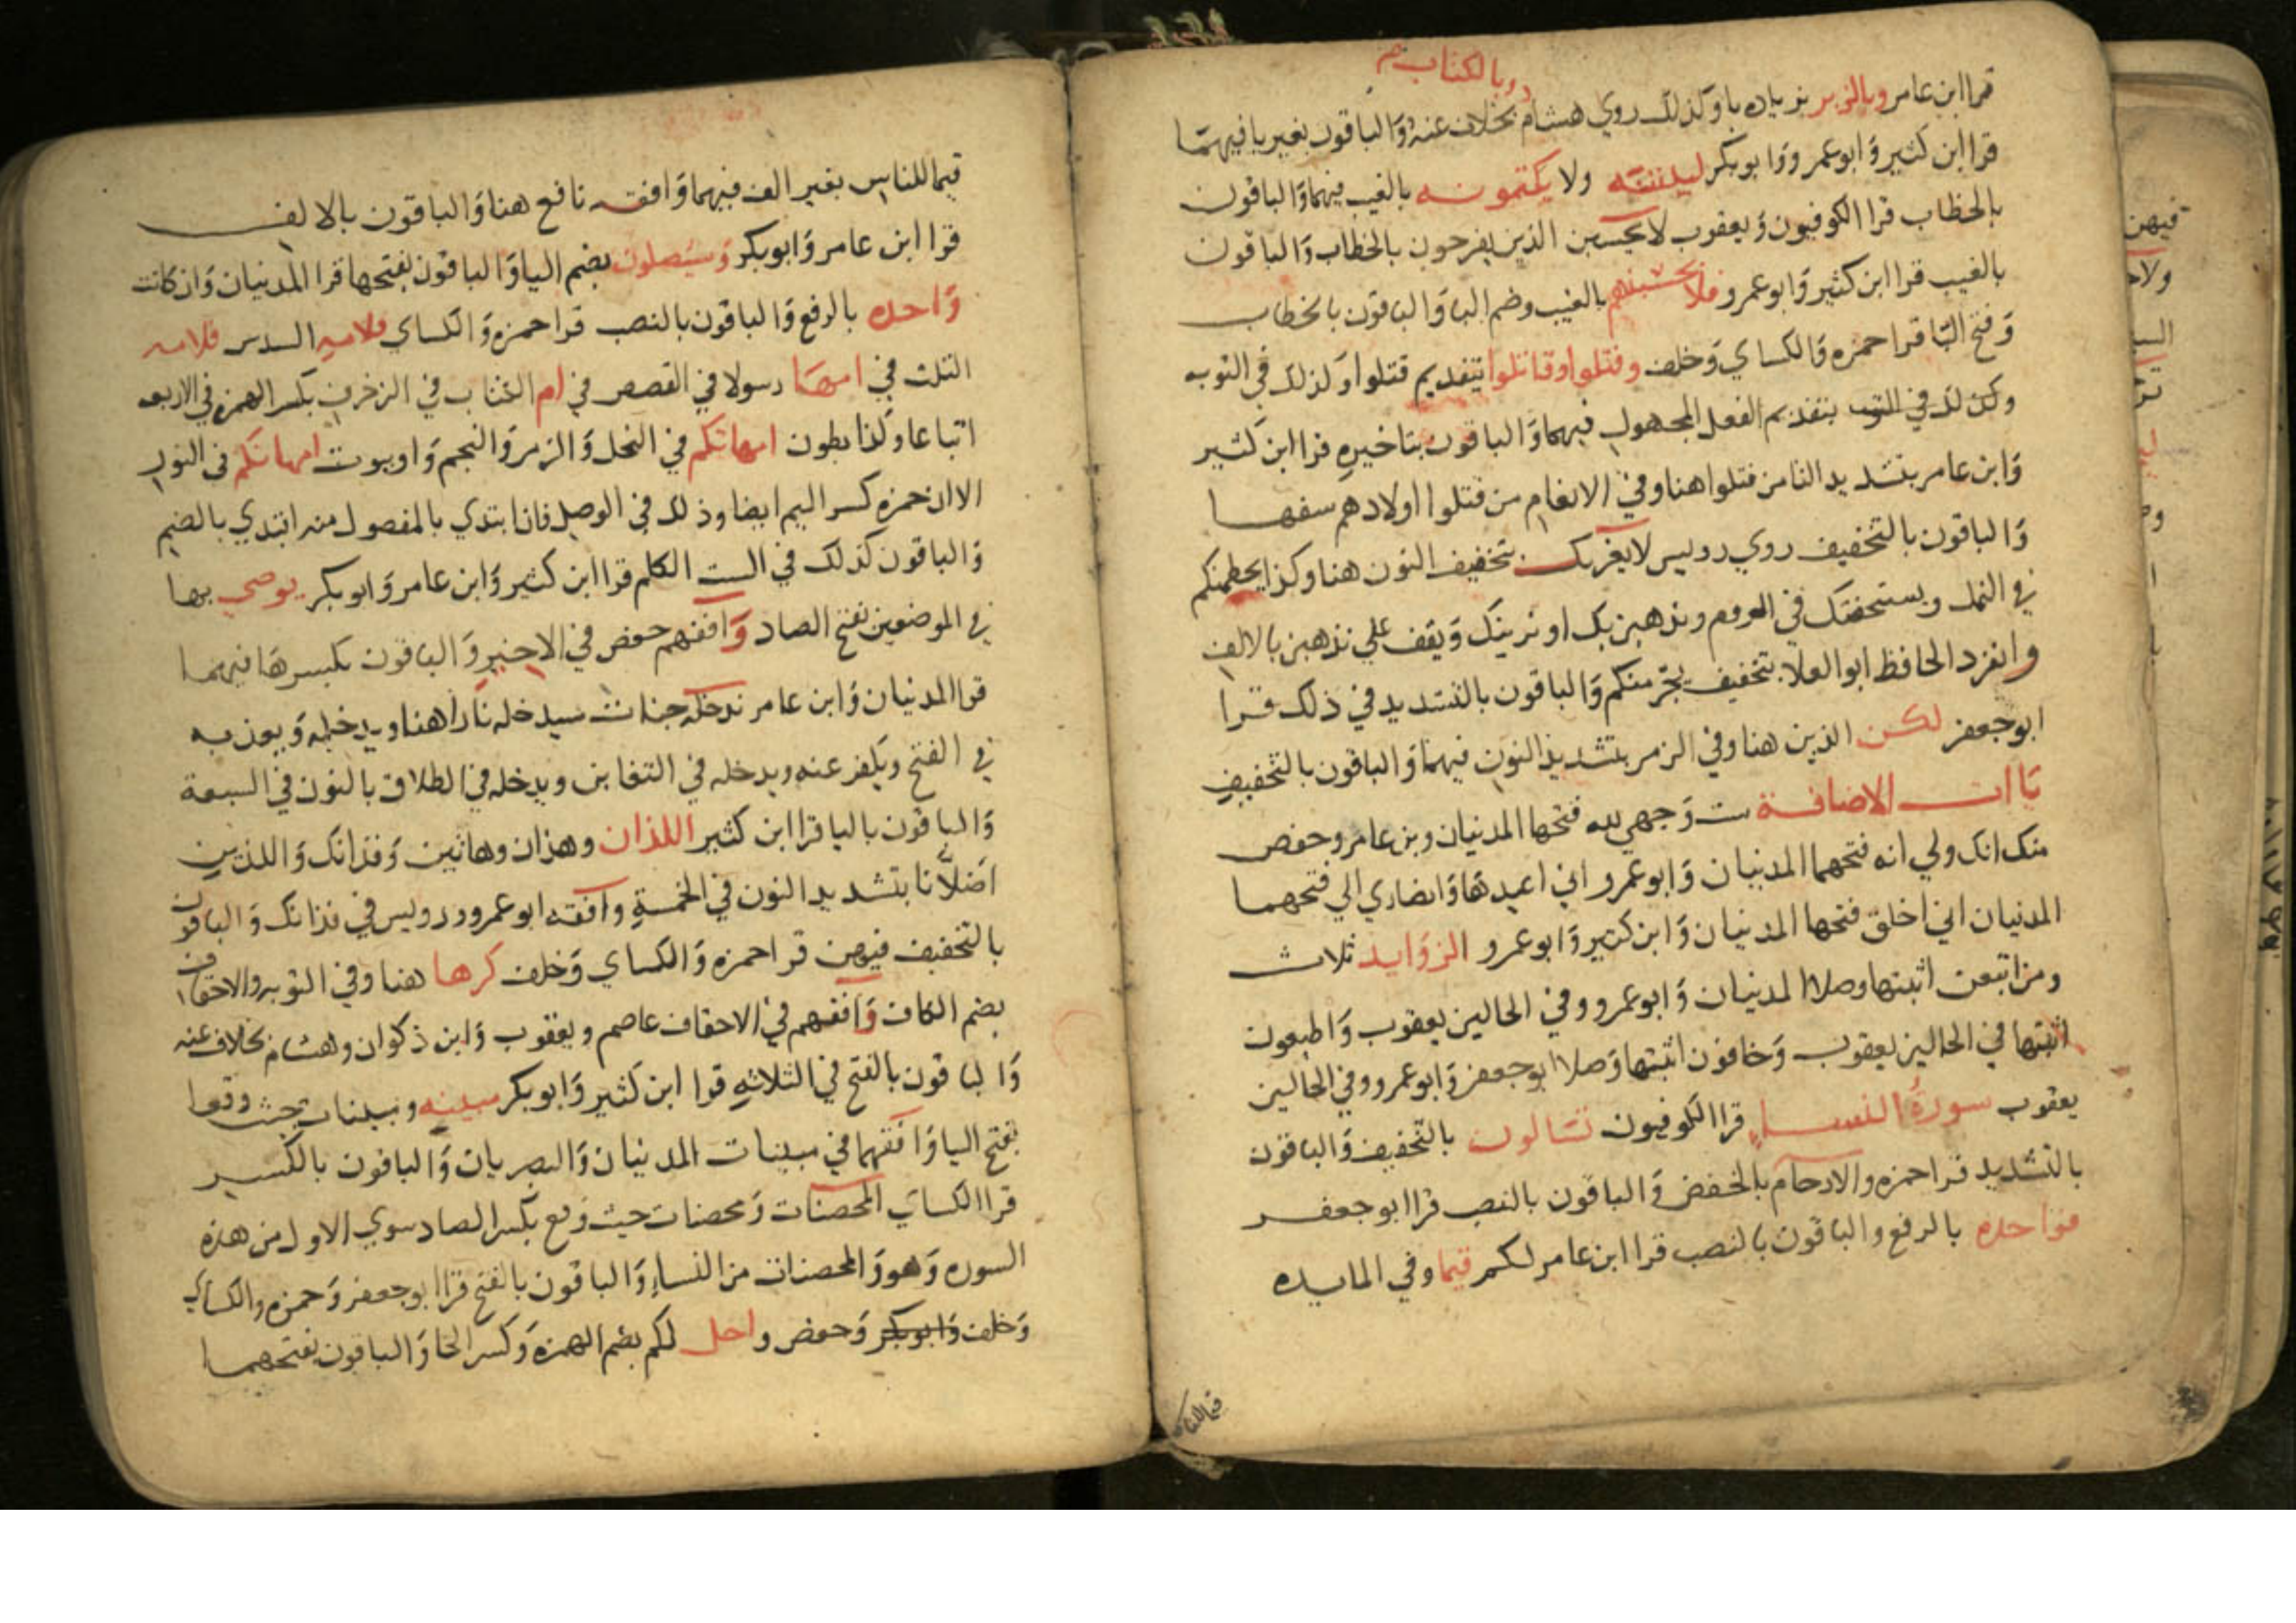 وبالكتاب صح
قرا ابن عامر وبالزبر بزياده با وكذلك روي هشام بخلاف عنه والباقون بغير با فيهما
قرا ابن كثير وابو عمرو وابو بكر ليبيننه ولا يكتمونه بالغيب فيهما والباقون
بالخطاب قرا الكوفيون ويعقوب لا تحسبن الذين يفرحون بالخطاب والباقون
بالغيب قرا ابن كثير وابو عمرو فلا تحسبنهم بالغيب وضم البا والباقون بالخطاب
وفتح البا قرا حمزه والكساي وخلف وقتلوا وقاتلوا بتقديم قتلوا وكذلك في التوبه
وكذلك في التوبه بتقديم الفعل المجهول فيهما والباقون بتاخيره قرا ابن كثير
وابن عامر بتشديد التا من قتلوا هنا وفي الانعام من قتلوا اولادهم سفها
والباقون بالتخفيف روي رويس لا يغرنك بتخفيف النون هنا وكذا يحطمنكم
في النمل ويستخفنك في الروم ونذهبن بك او نرينك ويقف علي نذهبن بالالف
وانفرد الحافظ ابو العلا بتخفيف يجرمنكم والباقون بالتشديد في ذلك قرا
ابو جعفر لكن الذين هنا وفي الزمر بتشديد النون فيهما والباقون بالتخفيف
يا ات الاضافة ست وجهي لله فتحها المدنيان وبن عامر وحفص
منك انك ولي انه فتحهما المدنيان وابو عمرو اني اعيدها وانصاري الي فتحهما
المدنيان اني اخلق فتحها المدنيان وابن كثير وابو عمرو الزوايد ثلاث
ومن اتبعن اثبتها وصلا المدنيان وابو عمرو وفي الحالين يعقوب واطيعون
اثبتها في الحالين يعقوب وخافون اثبتها وصلا ابو جعفر وابو عمرو وفي الحالين
يعقوب سورة النساء قرا الكوفيون تسالون بالتخفيف والباقون
بالتشديد قرا حمزه والارحام بالخفض والباقون بالنصب قرا ابو جعفر
فواحده بالرفع والباقون بالنصب قرا ابن عامر لكم قيما وفي المايده
قيما للناس
قيما للناس بغير الف فيهما وافقه نافع هنا والباقون بالالف
قرا ابن عامر وابو بكر وسيصلون بضم اليا والباقون بفتحها قرا المدنيان وان كانت
واحده بالرفع والباقون بالنصب قرا حمزه والكساي فلامه السدس فلامه
الثلث في امها رسولا في القصص في ام الكتاب في الزخرف بكسر الهمزه في الاربعه
اتباعا وكذا بطون امهاتكم في النحل والزمر والنجم واو بيوت امهاتكم في النور
الا ان حمزه كسر الميم ايضا وذلك في الوصل فان ابتدي بالمفصول منه ابتدي بالضم
والباقون كذلك في الست الكلم قرا ابن كثير وابن عامر وابو بكر يوصي بها
في الموضعين بفتح الصاد وافقهم حفص في الاخير والباقون بكسرها فيهما
قرا المدنيان وابن عامر ندخله جنات سيدخله نارا هنا ويدخله ويعذبه
في الفتح ويكفر عنه ويدخله في التغابن ويدخله في الطلاق بالنون في السبعة
والباقون باليا قرا ابن كثير اللذان وهذان وهاتين وفذانك واللذين
اضلانا بتشديد النون في الخمسة وافقه ابو عمرو ورويس في فذانك والباقون
بالتخفيف فيهن قرا حمزه والكساي وخلف كرها هنا وفي التوبه والاحقاف
بضم الكاف وافقهم في الاحقاف عاصم ويعقوب وابن ذكوان وهشام بخلاف عنه
والباقون بالفتح في الثلاثه قرا ابن كثير وابو بكر مبينه ومبينات حيث وقعا
بفتح اليا وافقهما في مبينات المدنيان والبصريان والباقون بالكسر
قرا الكساي المحصنات ومحصنات حيث وقع بكسر الصاد سوي الاول من هذه
السوره وهو والمحصنات من النساء والباقون بالفتح قرا ابو جعفر وحمزه والكساي
وخلف وابو بكر وحفص واحل لكم بضم الهمزه وكسر الحا والباقون بفتحهما
فيهن